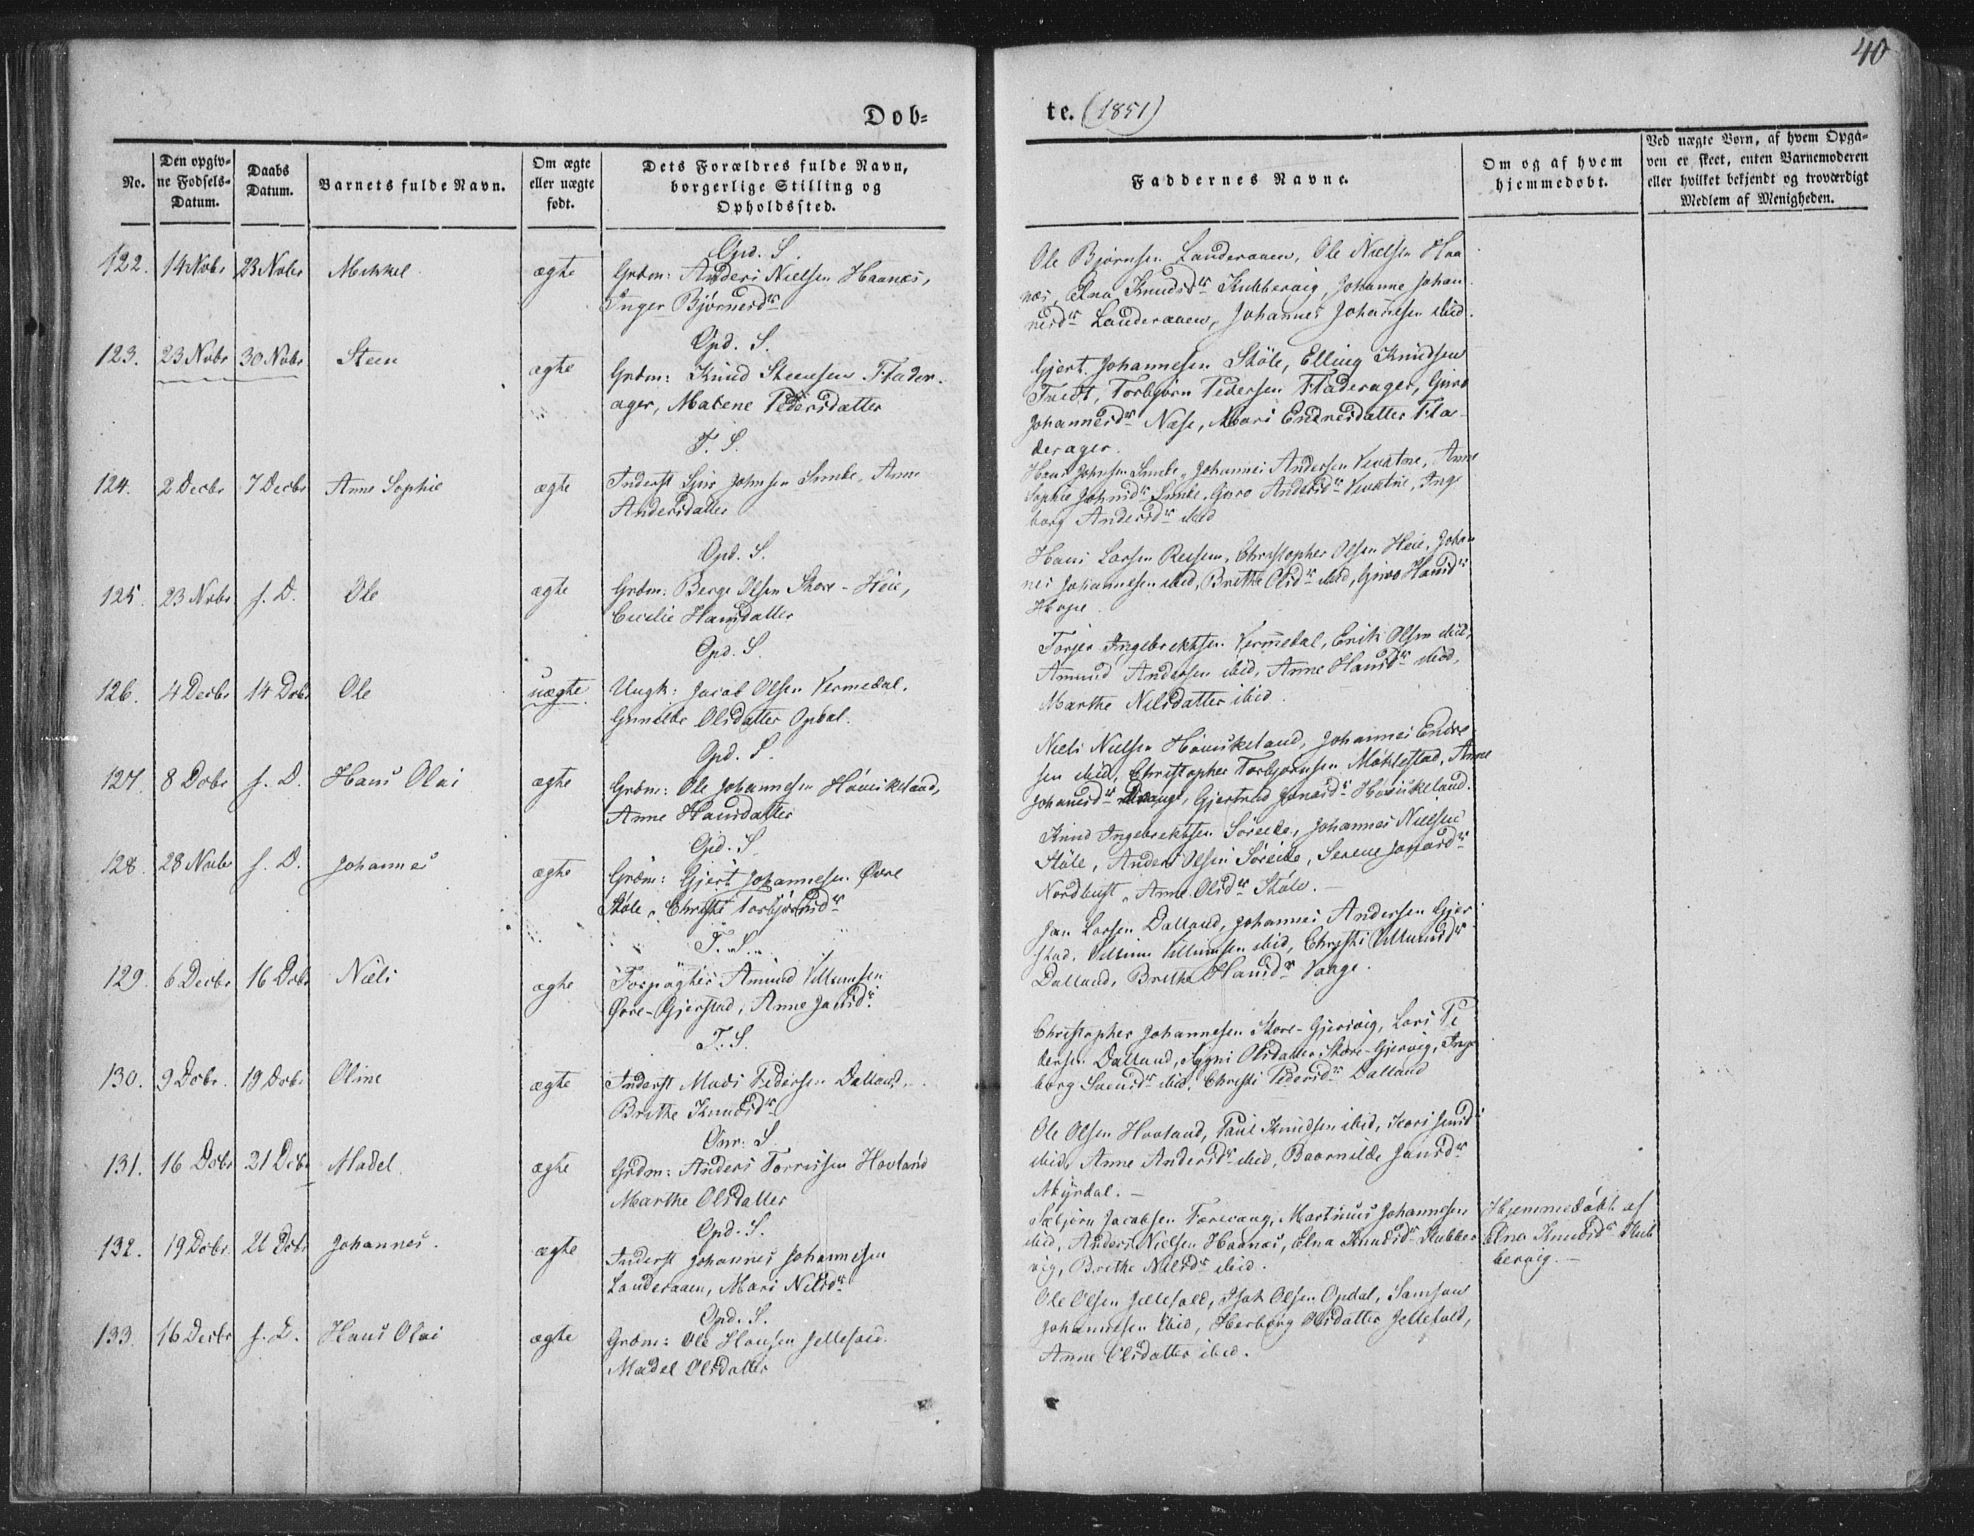 40
Døb=
te. (1851)
No.
Den opgiv-
ne Fødsels-
Datum.
Daabs
Datum.
Barnets fulde Navn.
Om ægte
eller uægte
født.
Dets Forældres fulde Navn,
borgerlige Stilling og
Opholdssted.
Faddernes Navne.
Om og af hvem
hjemmedøbt.
Ved uægte Børn, af hvem Opga-
ven er skeet, enten Barnemoderen
eller hvilket bekjendt og troværdigt
Medlem af Menigheden.
Opd. S.
122. 14 Nobr 23 Nobr Mikkel ægte Grdm: Anders Nielsen Haanæs,
Inger Bjørnsdr
Ole Bjørnsen Landeraaen, Ole Nielsen Haa
næs, Elna Knudsdr Kubbervig, Johanne Johan
nesdr Landeraaen, Johannes Johannesen ibid.
Opd. S.
123. 23 Nobr 30 Nobr Steen ægte Grdm: Knud Steensen Flader-
ager, Malene Pedersdatter
Gjert Johannesen Støle, Elling Knudsen
Tveidt, Torbjørn Pedersen Fladerager, Guro
Johannesdr Næse, Mari Endresdatter Fla-
derager.
T. S.
124. 2 Decbr 7 Decbr Anne Sophie ægte Inderst Sjur Johnsen, Anne
Andersdatter
Hans Johnsen, Johannes Andersen, Anne
Sophie Johnsdr, Guro Andersdr, Inge
borg Andersdr ibid
Opd. S.
125. 23 Nobr s. D. Ole ægte Grdm: Berge Olsen Store-Høie,
Cecilie Hansdatter
Hans Larsen, Christopher Olsen Høie, Johan
nes Johannesen ibid, Brithe Olsdr ibid, Guro Hansdr
Hope.
Opd. S.
126. 4 Decbr 14 Dobr Ole uægte. Ungk: Jacob Olsen Vermedal.
Gunilde Olsdatter Opdal.
Torger Ingebrektsen Vermedal, Erik Olsen ibid,
Amund Andersen ibid, Anne Hansdr ibid,
Marthe Nilsdatter ibid.
Opd. S.
127. 8 Dobr s. D. Hans Olai ægte Grdm: Ole Johannesen Haviskeland,
Anne Hansdatter
Niels Nielsen Haviskeland, Johannes Endre
sen ibid, Christopher Torbjørnsen Møklestad, Anne
Johansdr, Gjertrud Jonasdr Haviskeland.
Opd. S.
128. 28 Nobr s. D. Johannes ægte Grdm: Gjert Johannesen Øvre
Støle, Christi Torbjørnsdr
Knud Ingebrektsen Søreide, Johannes Nielsen
Støle, Anders Olsen Søreide, Serene Jonasdr
Nordhust, Anne Olsdr Støle. -
T. S.
129. 6 Decbr 16 Dobr Niels ægte Forpagter Amund Villumsen
Øvre-Gjerstad, Anne Jansdr
Jan Larsen Dalland, Johannes Andersen Gjer
stad, Villum Villumsen ibid, Christi Villumsdr
Dalland, Brithe Hansdr Vaage.
T. S.
130. 9 Dobr. 19 Dobr Oline ægte Inderst Mads Pedersen Dalland,
Brithe Knudsdr
Christopher Johannesen Store-Gjervig, Lars Pe
dersen Dalland, Sygni Olsdatter Store-Gjervig, Inge
borg Svensdr ibid, Christi Pedersdr Dalland
Onr. S.
131. 16 Dobr 21 Dobr Madel. ægte Grdm: Anders Torrissen Hovland
Marthe Olsdatter
Ole Olsen Hovland, Paul Knudsen ibid, Kari
ibid, Anne Andersdr ibid, Jansdr
Myrdal. -
Opd. S.
132. 19 Dobr. 26 Dobr Johannes. ægte Inderst Johannes Johannesen
Landeraaen, Mari Nilsdr
Asbjørn Jacobsen Færevaag, Martinus Johannesen
ibid, Anders Nielsen Haanæs, Elna Knudsdr Kubber
vig, Brithe Nilsdr ibid.
Hjemmedøbt af
Elna Knudsdr Kub
bervig. -
Opd. S.
133. 16 Decbr s. D. Hans Olai ægte Grdm: Ole Hansen Jellefald.
Madel Olsdatter
Ole Olsen Jellefald, Isak Olsen Opdal, Samson
Johannesen ibid, Herborg Olsdatter Jellefald,
Anne Olsdatter ibid.